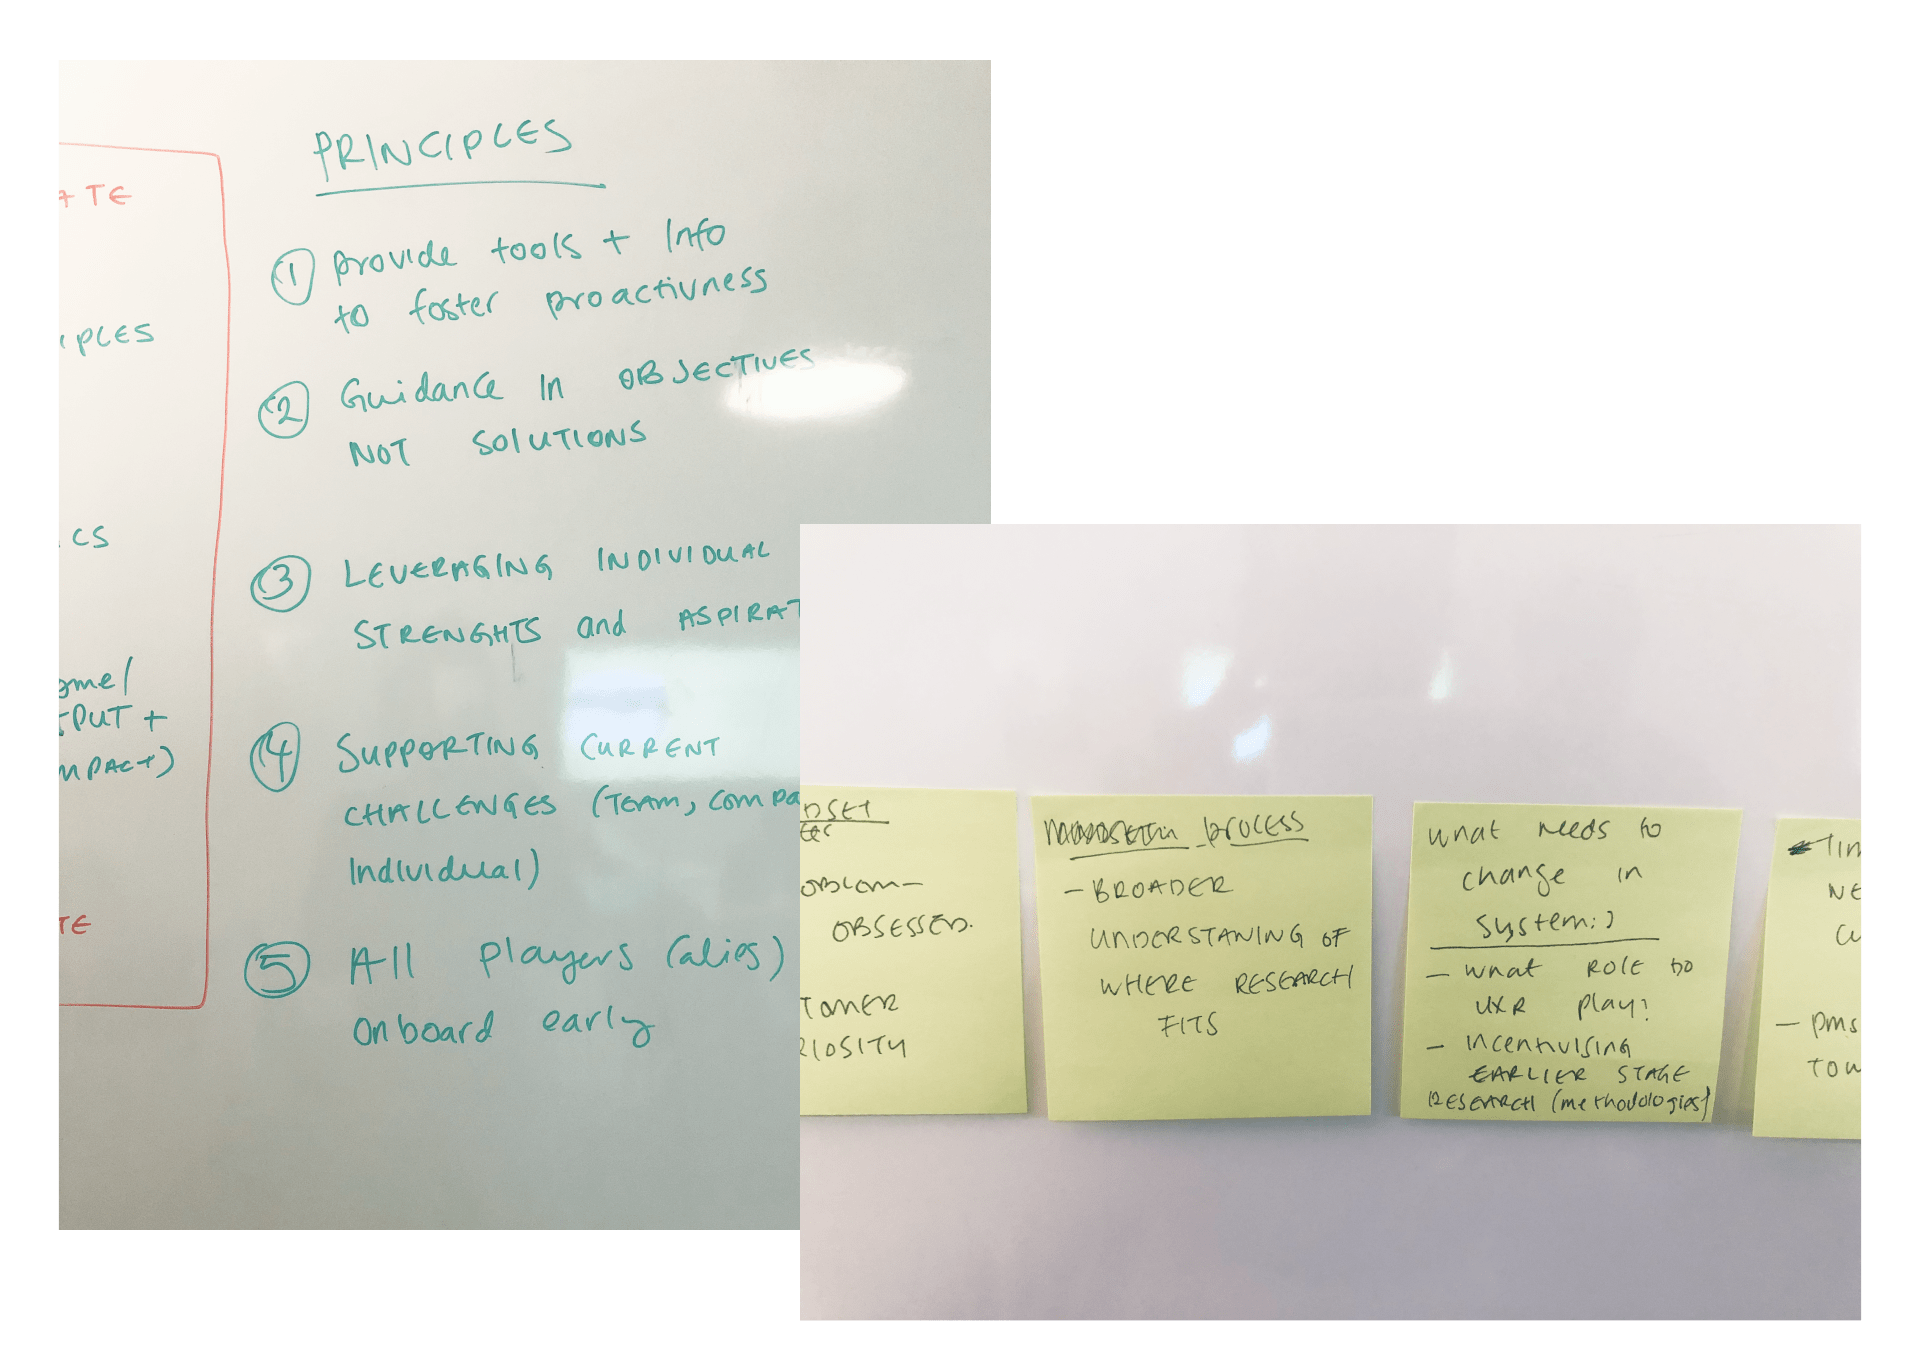 TE
IPLES
CS
ome/
PUT +
MPACT)
TE
PRINCIPLES
1 provide tools + Info
to foster proactivness
2 Guidance In OBJECTIVES
NOT SOLUTIONS
3 LEVERAGING INDIVIDUAL
STRENGHTS and ASPIRAT
4 SUPPORTING CURRENT
CHALLENGES (TEAM, compa
Individual)
5 All players (alies)
Onboard early
DSET
OBLEM-
OBSESSED.
TOMER
RIOSITY
process
- BROADER
UNDERSTANING OF
WHERE RESEARCH
FITS
what needs to
change in
system:?
- what ROLE DO
UXR play?
- incentivising
EARLIER STAGE
RESEARCH (methodologies)
TIM
NE
CU
- pms
TOW